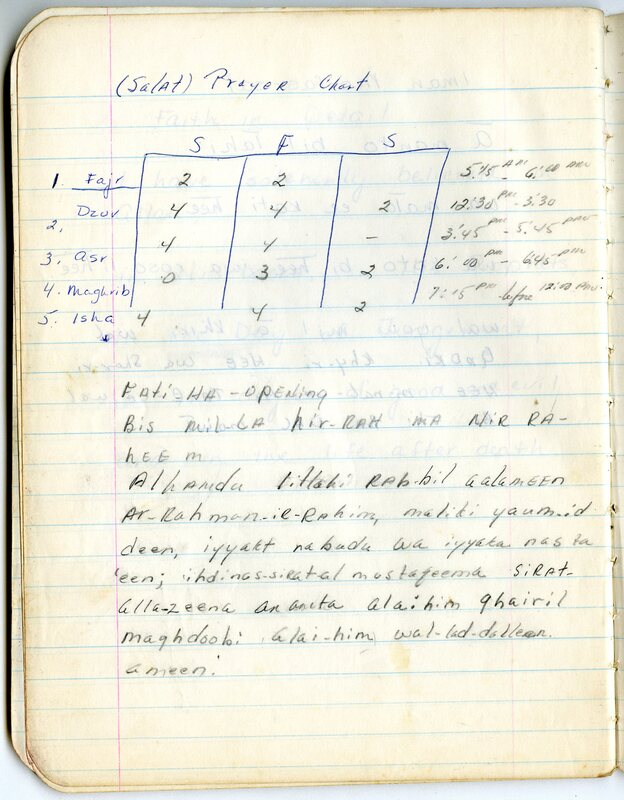 (Salat) Prayer Chart
S F S
1. Fajr 2 2 5:45 AM - 6:00 AM
2. Dzur 4 4 2 12:30 PM - 3:30
3. Asr 4 4 - 3:45 PM - 5:45 PM
4. Maghrib 0 3 2 6:00 PM - 6:45 PM
5. Isha 4 4 2 7:15 PM before 12:00 AM
FatiHA - OPENING
Bis milLA hir-RAH MA NIR RA-
hEE m
Alhamdu lillahi RAb-bil aalameen
Ar-Rahman-ir-Rahim, maliki yaum-id
deen, iyyaka nabudu wa iyyaka nasta
'een; ihdinas-siratal mustaqeema SiRAt-
alla-zeena anamta alaihim ghairil
maghdoobi alai-him, wal-lad-dalleen.
ameen.